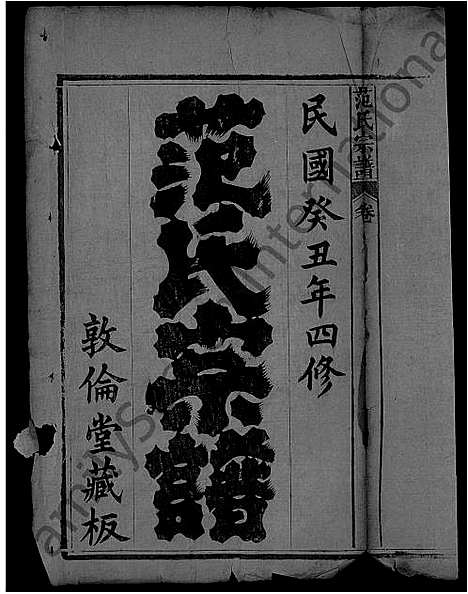 范氏宗譜 卷
民國癸丑年四修
范氏宗譜
敦倫堂藏板